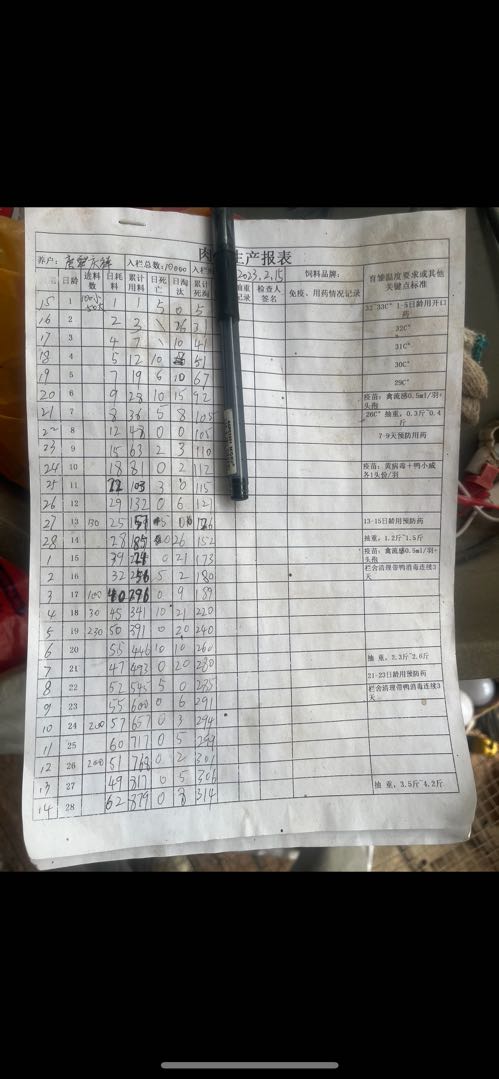 肉 生产报表
养户: 入栏总数:10000 入栏 2023.2.15 饲料品牌:
日龄 进料数 日耗料 累计用料 日死亡 日淘汰 累计死淘 抽重记录 检查人签名 免疫、用药情况记录 育雏温度要求或其他关键点标准
15 1 1 1 5 0 5 32-33C° 1-5日龄用开口药
16 2 2 3 26 31 32C°
17 3 4 7 10 41 31C°
18 4 5 12 10 51 30C°
19 5 7 19 6 10 67 29C°
20 6 9 28 10 15 92 疫苗:禽流感0.5ml/羽+头孢
21 7 8 36 5 8 105 26C° 抽重,0.3斤~0.4斤
22 8 12 48 0 0 105 7-9天预防用药
23 9 15 63 2 3 110
24 10 18 81 0 2 112 疫苗:黄病毒+鸭小威各1头份/羽
25 11 22 103 3 0 115
26 12 29 132 0 6 121
27 13 130 25 157 126 13-15日龄用预防药
28 14 28 185 0 26 152 抽重:1.2斤~1.5斤
1 15 39 224 0 21 173 疫苗:禽流感0.5ml/羽+头孢
2 16 32 256 5 2 180 栏舍清理带鸭消毒连续3天
3 17 100 40 296 0 9 189
4 18 30 45 341 10 21 220
5 19 230 50 391 0 20 240
6 20 55 446 10 10 260
7 21 47 493 0 20 280 抽 重,2.3斤~2.6斤
8 22 52 545 5 0 285 21-23日龄用预防药
9 23 55 600 0 6 291 栏舍清理带鸭消毒连续3天
10 24 200 57 657 0 3 294
11 25 60 717 0 5 299
12 26 200 51 768 0 2 301
13 27 49 817 0 5 306
14 28 62 879 0 8 314 抽 重,3.5斤~4.2斤